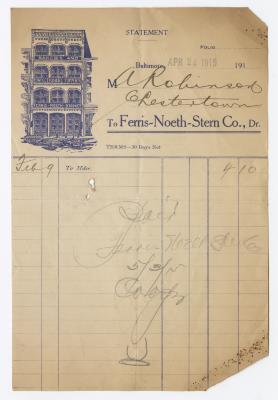 STATEMENT
FOLIO
Baltimore, APR 24 1915 191
M A Robinson
Chestertown
To Ferris-Noeth-Stern Co., Dr.
TERMS—30 Days Net
Feb 9 To Mdse. 4 10
Paid
Ferris Noeth Stern Co
5/3/15